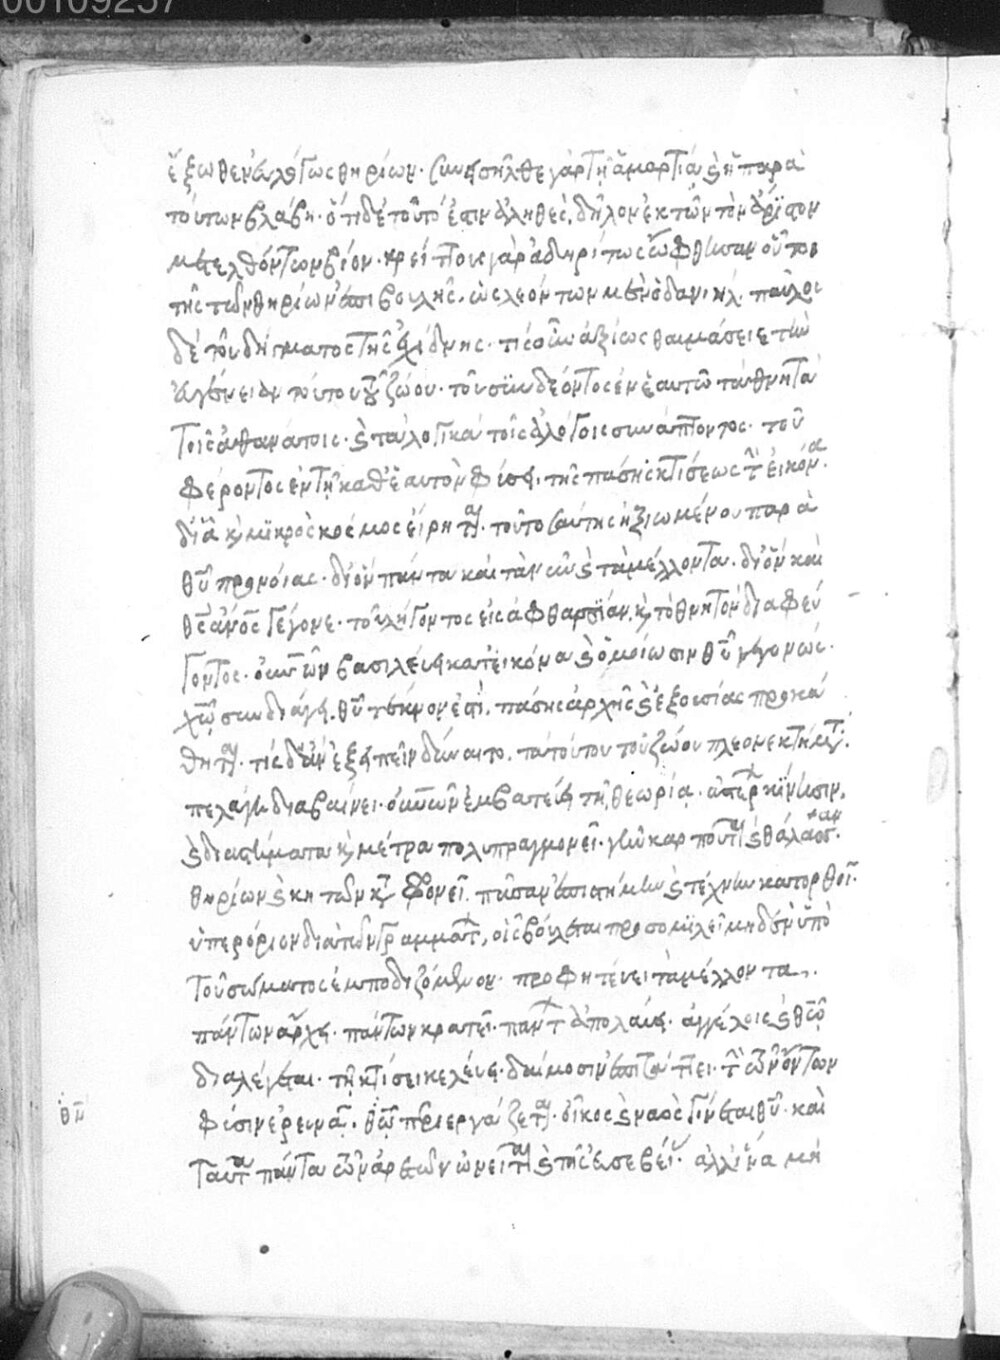 00109257
ἔξωθεν ἀλόγως θηρίων· συνεισῆλθε γὰρ τῇ ἁμαρτίᾳ καὶ ἡ παρὰ
τούτων βλάβη· ὅτι δὲ τοῦτό ἐστιν ἀληθές, δῆλον ἐκ τῶν τὸν ἄριστον
μετελθόντων βίον· κρείττους γὰρ ἀδηρίτως ὤφθησαν οὗτοι
τῆς τῶν θηρίων ἐπιβουλῆς, ὡς λεόντων μὲν ὁ δανιήλ· παῦλος
δὲ τοῦ δήγματος τῆς ἐχίδνης· τίς οὖν ἀξίως θαυμάσειε τὴν
εὐγένειαν τούτου τοῦ ζώου· τοῦ συνδέοντος ἐν ἑαυτῷ τὰ θνητὰ
τοῖς ἀθανάτοις· καὶ τὰ λογικὰ τοῖς ἀλόγοις συνάπτοντος· τοῦ
φέροντος ἐν τῇ καθ' ἑαυτὸν φύσει, τῆς πάσης κτίσεως τὴν εἰκόνα·
δι' ἃ καὶ μικρὸς κόσμος εἴρηται· τοῦ τοσαύτης ἠξιωμένου παρὰ
θῦ προνοίας· δι' ὃν πάντα καὶ τὰ νῦν καὶ τὰ μέλλοντα· δι' ὃν καὶ
θς ἄνος γέγονε· τοῦ λήγοντος εἰς ἀφθαρσίαν, καὶ τὸ θνητὸν διαφεύ
γοντος· οὐνῶν βασιλεύει κατ' εἰκόνα καὶ ὁμοίωσιν θῦ γεγονώς·
χῷ συνδιάγει· θῦ τέκνον ἐστί, πάσης ἀρχῆς καὶ ἐξουσίας προκά
θηται· τίς δ' ἂν ἐξειπεῖν δύναιτο, τὰ τούτου τοῦ ζώου πλεονεκτήματα·
πελάγη διαβαίνει· οὐνῶν ἐμβατεύει τῇ θεωρίᾳ· ἀστέρων κίνησιν,
καὶ διαστήματα καὶ μέτρα πολυπραγμονεῖ· γῆν καρποῦται καὶ θάλασσαν·
θηρίων καὶ κητῶν καταφρονεῖ· πᾶσαν ἐπιστήμην καὶ τέχνην κατορθοῖ·
ὑπερόριον διὰ τῶν γραμμάτων, οἷς βούλεται προσομιλεῖ μηδὲν ὑπὸ
τοῦ σώματος ἐμποδιζόμενον· προφητεύει τὰ μέλλοντα·
πάντων ἄρχει· πάντων κρατεῖ· πάντων ἀπολαύει· ἀγγέλοις καὶ θῷ
διαλέγεται· τῇ κτίσει κελεύει· δαίμοσιν ἐπιτάττει· τὴν τῶν ὄντων
φύσιν ἐρευνᾷ· θῷ περιεργάζεται· οἶκος καὶ ναὸς γίνεται θῦ· καὶ
ταῦτα πάντα τῶν ἀρετῶν ὠνεῖται καὶ τῆς εὐσεβείας· ἀλλ' ἵνα μὴ
θν